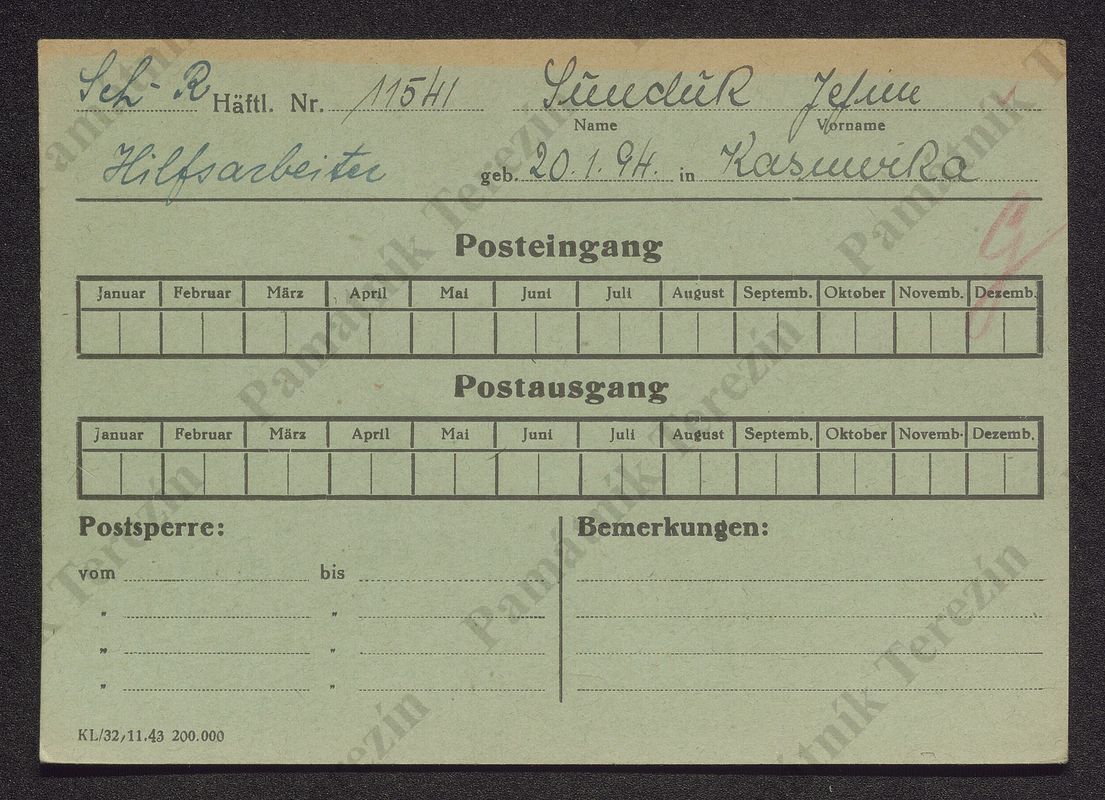 Sch-R Häftl. Nr. 11541 Sunduk Jefim
Name Vorname
Hilfsarbeiter geb. 20.1.94. in
Posteingang
Januar Februar März April Mai Juni Juli August Septemb. Oktober Novemb. Dezemb.
Postausgang
Januar Februar März April Mai Juni Juli August Septemb. Oktober Novemb. Dezemb.
Postsperre: Bemerkungen:
vom bis
" "
" "
" "
KL/32/11.43 200.000
Památník Terezín